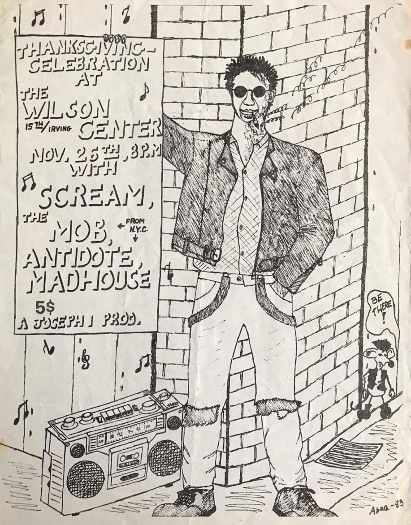 THANKSGIVING-
CELEBRATION
AT
THE
WILSON
15TH/IRVING CENTER
NOV. 25TH, 8P.M
WITH
SCREAM,
THE
MOB, ← FROM N.Y.C.
ANTIDOTE,
MADHOUSE
5$
A JOSEPH I PROD.
BE
THERE
!
Anna -83